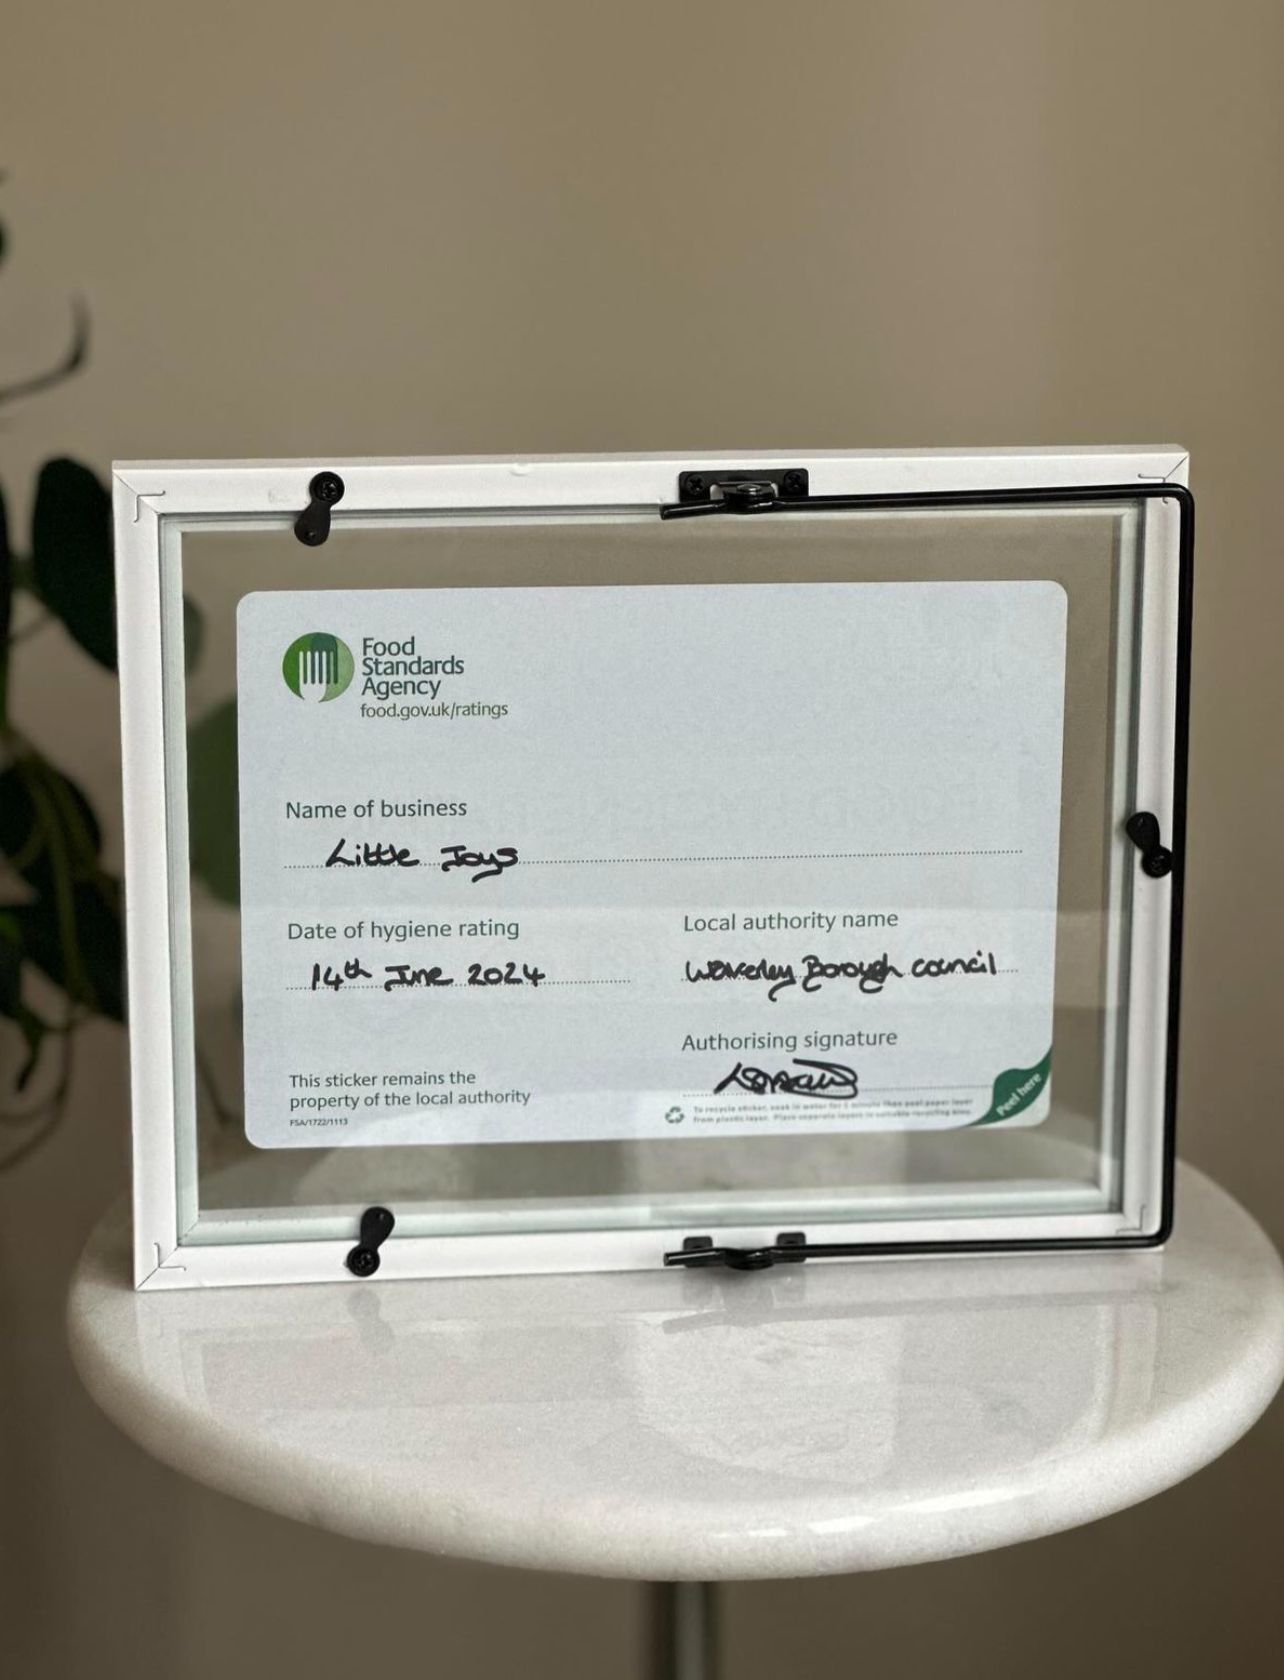 Food
Standards
Agency
food.gov.uk/ratings
Name of business
Little Joys
Date of hygiene rating
14th June 2024
Local authority name
Waverley Borough council
Authorising signature
This sticker remains the
property of the local authority
FSA/1722/1113
To recycle sticker, soak in water for 1 minute then peel paper layer
from plastic layer. Place separate layers in suitable recycling bins.
Peel here